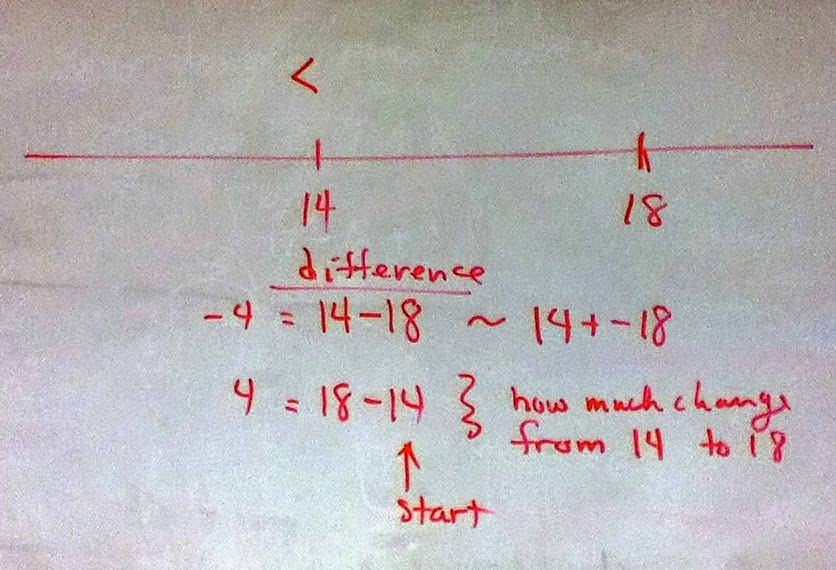 <
14 18
difference
-4 = 14-18 ~ 14+-18
4 = 18-14 } how much change
from 14 to 18
↑
start